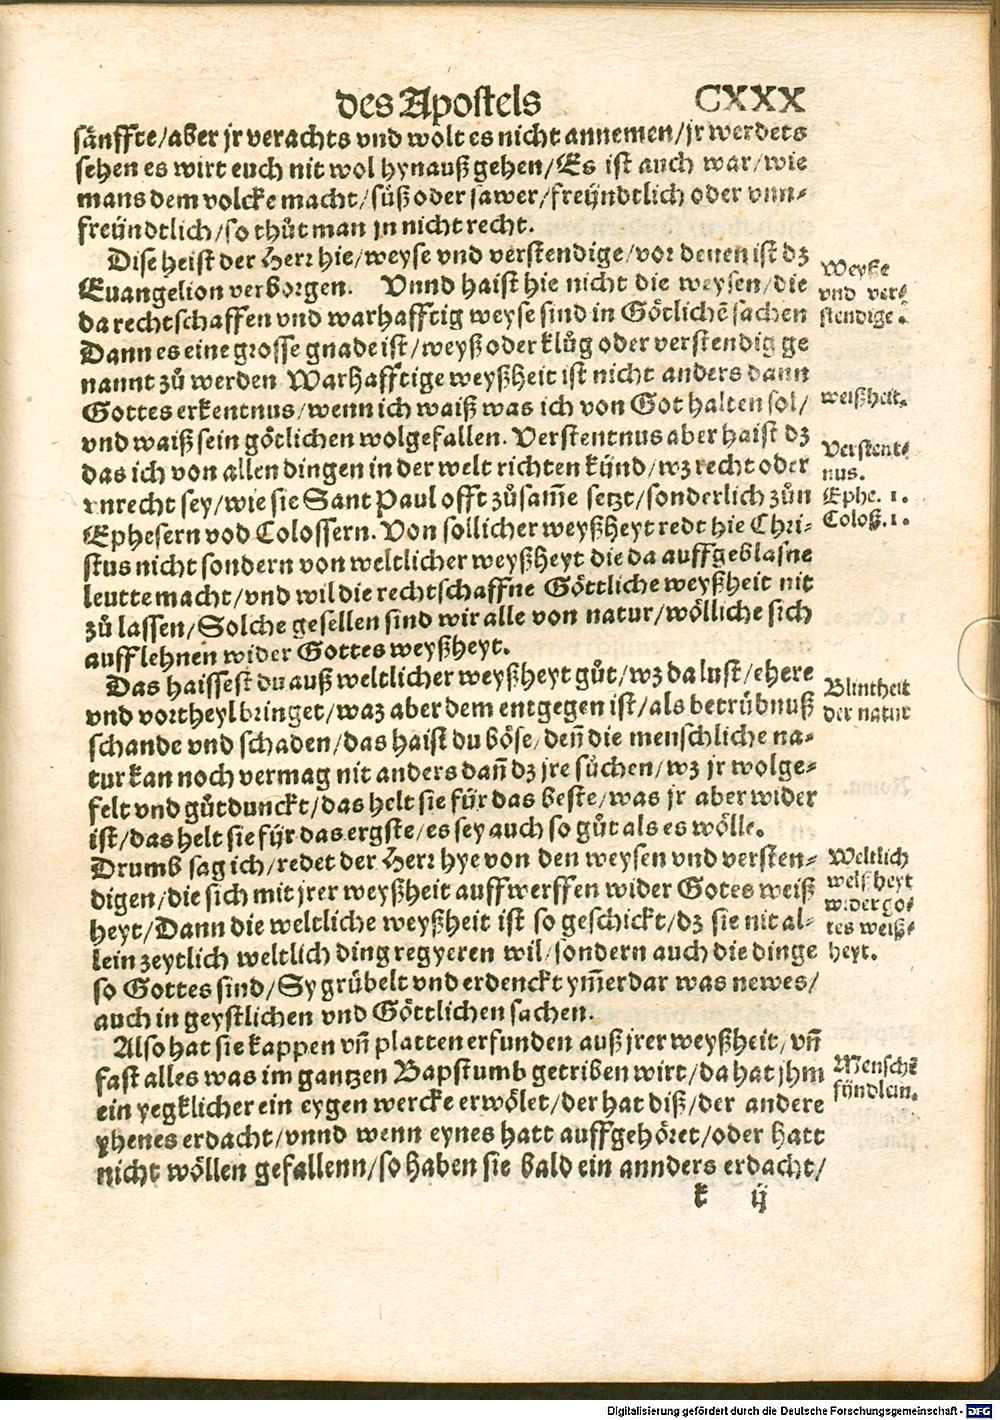 des Apostels CXXX
sänffte/aber jr verachts vnd wolt es nicht annemen/jr werdets
sehen es wirt euch nit wol hynauß gehen/Es ist auch war/wie
mans dem volcke macht/süß oder sawer/freÿndtlich oder vnn-
freÿndtlich/so thůt man jn nicht recht.
Dise heist der Herr hie/weyse vnd verstendige/vor denen ist dz
Euangelion verborgen. Vnnd haist hie nicht die weysen/die
da rechtschaffen vnd warhafftig weyse sind in Götlichē sachen
Dann es eine grosse gnade ist/weyß oder klůg oder verstendig ge
nannt zů werden Warhafftige weyßheit ist nicht anders dann
Gottes erkentnus/wenn ich waiß was ich von Got halten sol/
vnd waiß sein götlichen wolgefallen. Verstentnus aber haist dz
das ich von allen dingen in der welt richten kÿnd/wz recht oder
vnrecht sey/wie sie Sant Paul offt zůsam̄e setzt/sonderlich zůn
Ephesern vod Colossern. Von sollicher weyßheyt redt hie Chri-
stus nicht sondern von weltlicher weyßheyt die da auffgeblasne
leutte macht/vnd wil die rechtschaffne Göttliche weyßheit nit
zů lassen/Solche gesellen sind wir alle von natur/wölliche sich
auff lehnen wider Gottes weyßheyt.
Das haissest du auß weltlicher weyßheyt gůt/wz da lust/ehere
vnd vortheyl bringet/waz aber dem entgegen ist/als betrübnuß
schande vnd schaden/das haist du böse/den̄ die menschliche na-
tur kan noch vermag nit anders dan̄ dz jre sůchen/wz jr wolge-
felt vnd gůtdunckt/das helt sie fÿr das beste/was jr aber wider
ist/das helt sie fÿr das ergste/es sey auch so gůt als es wölle.
Drumb sag ich/redet der Herr hye von den weysen vnd versten-
digen/die sich mit jrer weyßheit auffwerffen wider Gotes weiß
heyt/Dann die weltliche weyßheit ist so geschickt/dz sie nit al-
lein zeytlich weltlich ding regyeren wil/sondern auch die dinge
so Gottes sind/Sy grübelt vnd erdenckt ym̄erdar was newes/
auch in geystlichen vnd Göttlichen sachen.
Also hat sie kappen vn̄ platten erfunden auß jrer weyßheit/vn̄
fast alles was im gantzen Bapstumb getriben wirt/da hat jhm
ein yegklicher ein eygen wercke erwölet/der hat diß/der andere
yhenes erdacht/vnnd wenn eynes hatt auffgehöret/oder hatt
nicht wöllen gefallenn/so haben sie bald ein annders erdacht/
k ij
Weyße
vnd ver-
stendige.
weißheit.
Verstent-
nus.
Ephe. 1.
Coloß. 1.
Blintheit
der natur
Weltlich
weißheyt
wider go-
tes weiß-
heyt.
Menschē
fÿndlein.
Digitalisierung gefördert durch die Deutsche Forschungsgemeinschaft - DFG